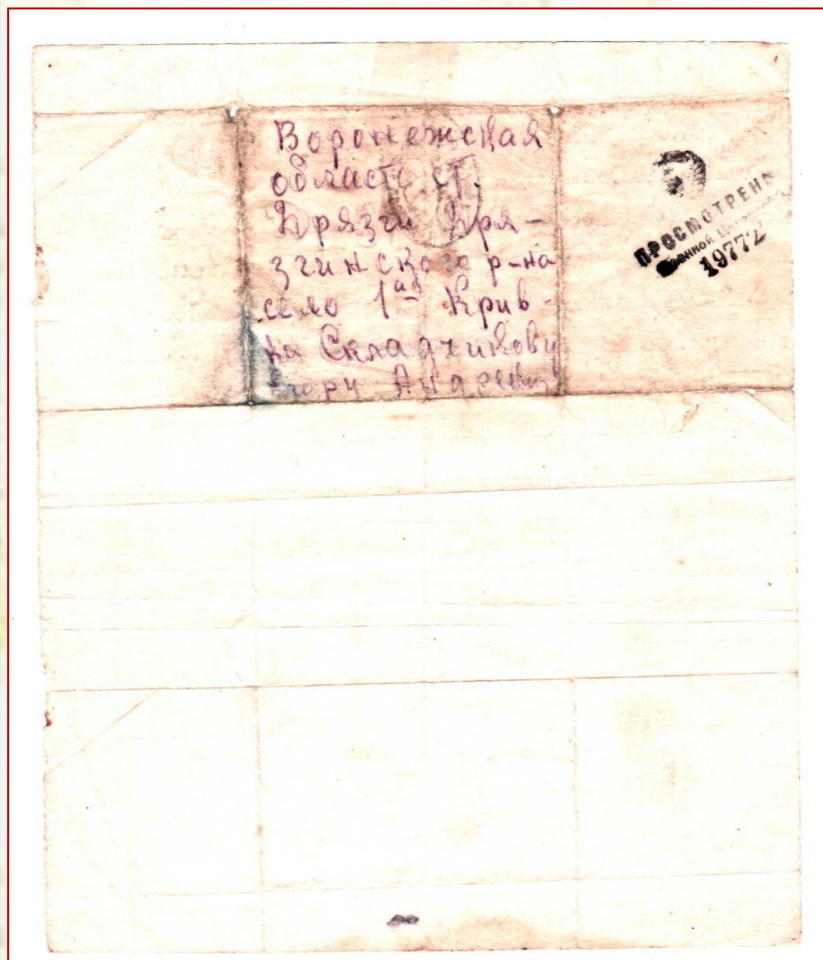 Воронежская
область ст.
Хрязги Хря-
згинского р-на
село 1ая Крив-
ка Складчикову
Егору Андреевич
ПРОСМОТРЕНО
Военной Цензурой
19772